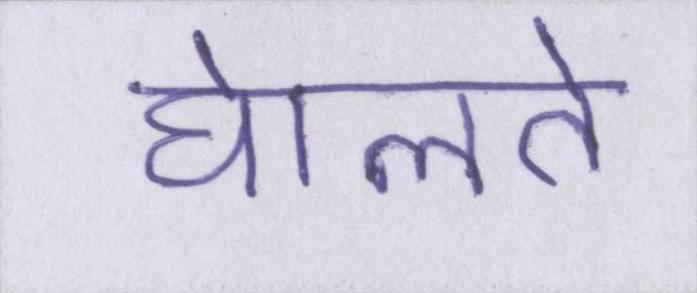 घोलते